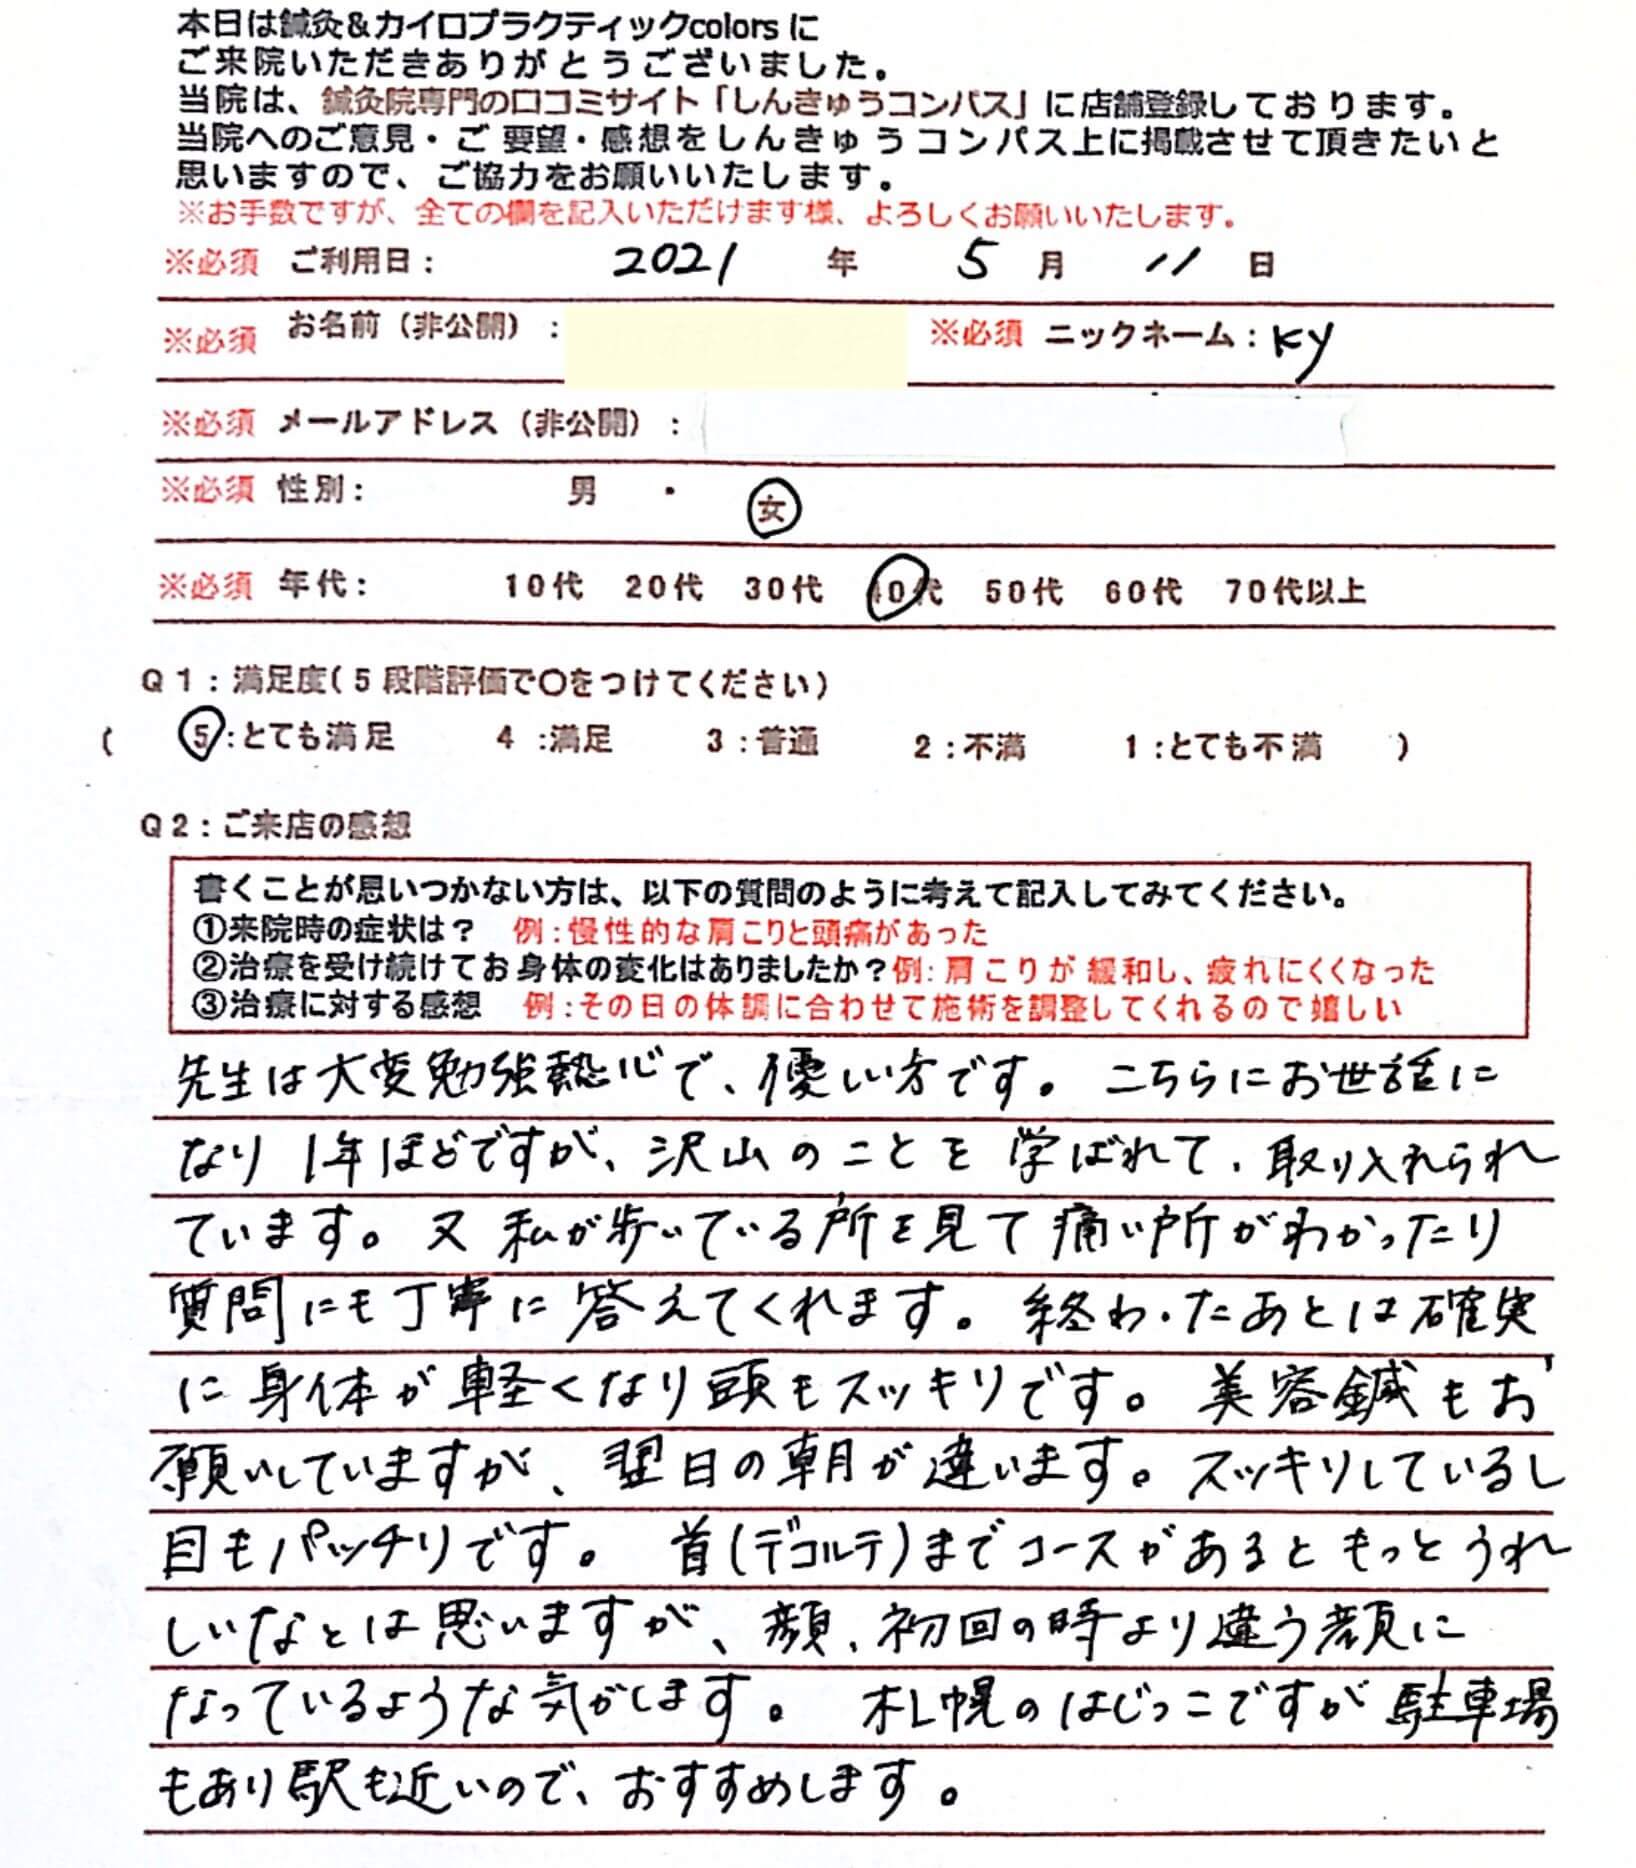 本日は鍼灸&カイロプラクティックcolorsに
ご来院いただきありがとうございました。
当院は、鍼灸院専門の口コミサイト「しんきゅうコンパス」に店舗登録しております。
当院へのご意見・ご要望・感想をしんきゅうコンパス上に掲載させて頂きたいと
思いますので、ご協力をお願いいたします。
※お手数ですが、全ての欄を記入いただけます様、よろしくお願いいたします。
※必須 ご利用日: 2021 年 5 月 11 日
※必須 お名前(非公開): ※必須 ニックネーム: KY
※必須 メールアドレス(非公開):
※必須 性別: 男 ・ 女
※必須 年代: 10代 20代 30代 40代 50代 60代 70代以上
Q1:満足度(5段階評価で○をつけてください)
( 5:とても満足 4:満足 3:普通 2:不満 1:とても不満 )
Q2:ご来店の感想
書くことが思いつかない方は、以下の質問のように考えて記入してみてください。
①来院時の症状は? 例:慢性的な肩こりと頭痛があった
②治療を受け続けてお身体の変化はありましたか?例:肩こりが緩和し、疲れにくくなった
③治療に対する感想 例:その日の体調に合わせて施術を調整してくれるので嬉しい
先生は大変勉強熱心で、優しい方です。こちらにお世話に
なり1年ほどですが、沢山のことを学ばれて、取り入れられ
ています。又私が歩いている所を見て痛い所がわかったり
質問にも丁寧に答えてくれます。終わったあとは確実
に身体が軽くなり頭もスッキリです。美容鍼もお
願いしていますが、翌日の朝が違います。スッキリしているし
目もパッチリです。首(デコルテ)までコースがあるともっとうれ
しいなとは思いますが、顔、初回の時より違う顔に
なっているような気がします。札幌のはじっこですが駐車場
もあり駅も近いので、おすすめします。